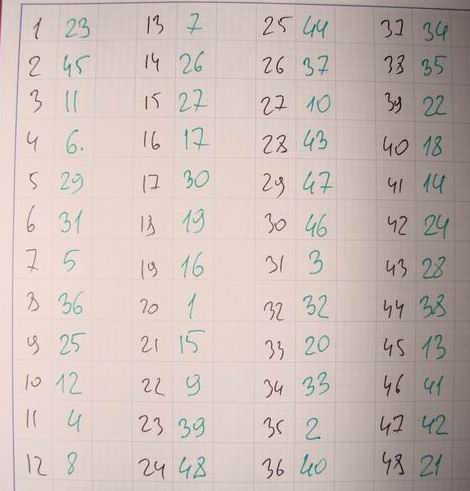 1 23 13 7 25 44 37 34
2 45 14 26 26 37 38 35
3 11 15 27 27 10 39 22
4 6. 16 17 28 43 40 18
5 29 17 30 29 47 41 14
6 31 18 19 30 46 42 24
7 5 19 16 31 3 43 28
8 36 20 1 32 32 44 38
9 25 21 15 33 20 45 13
10 12 22 9 34 33 46 41
11 4 23 39 35 2 47 42
12 8 24 48 36 40 48 21